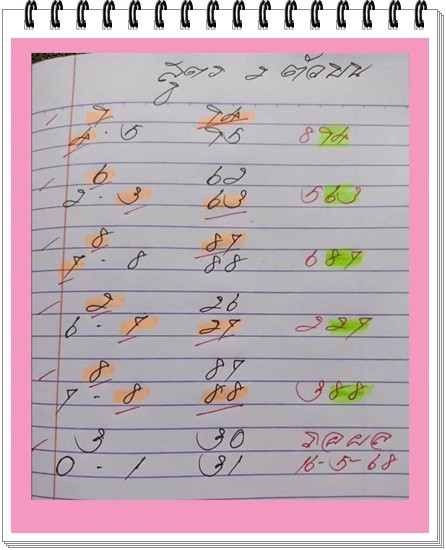 สูตร 2 ตัวบน
7 74
4 . 5 75 874
6 62
2 . 3 63 563
8 87
7 - 8 88 687
2 26
6 - 7 27 227
8 87
7 - 8 88 388
3 30 รอผล
0 - 1 31 16-5-68